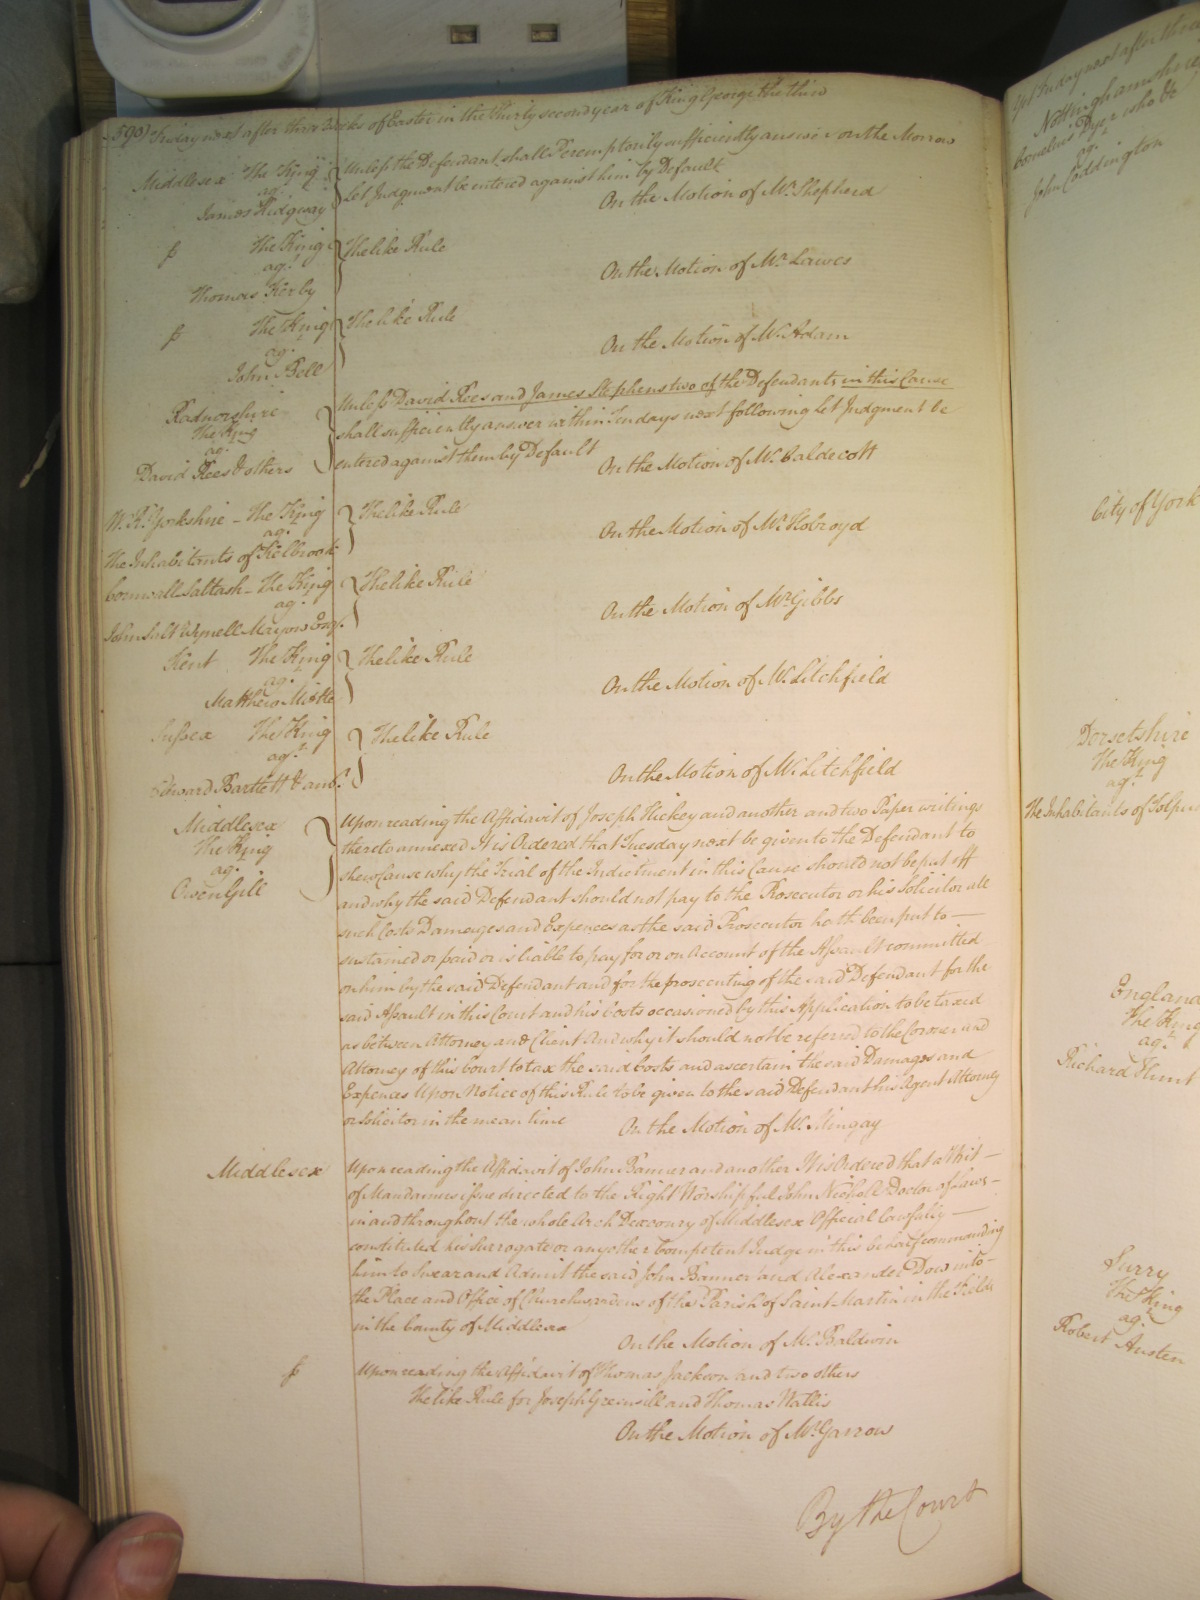 590) Friday next after three Weeks of Easter in the thirty second year of King George the third
Middlesex The King
agt
James Ridgway
Unless the Defendant shall Peremptorily sufficiently answer on the Morrow
Let Judgment be entered against him by Default
On the Motion of Mr. Shepherd
s The King
agt
Thomas Kerby
The like Rule
On the Motion of Mr. Lawes
s The King
agt
John Bell
The like Rule
On the Motion of Mr. Adam
Radnorshire
The King
agt
David Rees & others
Unless David Rees and James Stephens two of the Defendants in this Cause
shall sufficiently answer within Ten days next following Let Judgment be
entered against them by Default
On the Motion of Mr. Caldecott
W. R. Yorkshire - The King
agt
The Inhabitants of Kelbrook
The like Rule
On the Motion of Mr. Holroyd
Cornwall Saltash - The King
agt
John Wynell Mayow Esqr.
The like Rule
On the Motion of Mr. Gibbs
Kent The King
agt
Matthew
The like Rule
On the Motion of Mr. Litchfield
Sussex The King
agt
Edward Bartlett & anr.
The like Rule
On the Motion of Mr. Litchfield
Middlesex
The King
agt
Owen Gill
Upon reading the Affidavit of Joseph Hickey and another and two Paper writings
thereto annexed It is Ordered that Tuesday next be given to the Defendant to
shew Cause why the Trial of the Indictment in this Cause should not be put off
and why the said Defendant should not pay to the Prosecutor or his Solicitor all
such Costs Damages and Expences as the said Prosecutor hath been put to —
sustained or paid or is liable to pay for or on Account of the Assault committed
on him by the said Defendant and for the prosecuting of the said Defendant for the
said Assault in this Court and his Costs occasioned by this Application to be taxed
as between Attorney and Client And why it should not be referred to the Coroner and
Attorney of this Court to tax the said Costs and ascertain the said Damages and
Expences Upon Notice of this Rule to be given to the said Defendant his Agent Attorney
or Solicitor in the mean time
On the Motion of Mr. Mingay
Middlesex
Upon reading the Affidavit of John Banner and another It is Ordered that a Writ —
of Mandamus issue directed to the Right Worshipful John Nicholl Doctor of Laws —
in and throughout the whole Arch Deaconry of Middlesex Official lawfully —
constituted his Surrogate or any other Competent Judge in this behalf commanding
him to Swear and Admit the said John Banner and Alexander Dow into —
the Place and Office of Churchwardens of the Parish of Saint Martin in the Fields
in the County of Middlesex
On the Motion of Mr. Baldwin
s
Upon reading the Affidavit of Thomas Jackson and two others
The like Rule for Joseph Greensill and Thomas Wallis
On the Motion of Mr. Garrow
By the Court
Nottinghamshire
Cornelius Dyer who &c
agt
John Coddington
City of York
Dorsetshire
The King
agt
The Inhabitants of Tolpu
England
The King
agt
Richard Hunt
Surry
The King
agt
Robert Austen